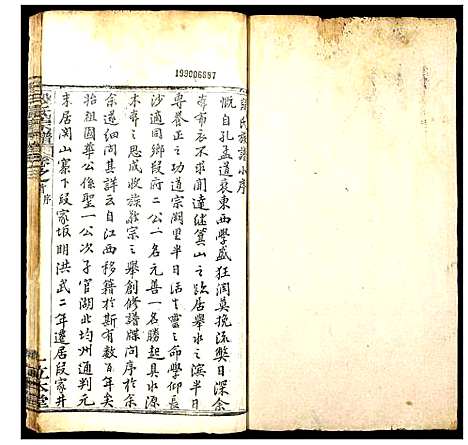 190006887
段氏族譜小序
慨自孔孟道衰東西學盛狂瀾莫挽流弊日深余
奉布衣不求聞達继箕山之跡居舉水之濱半日
專養正之功道宗闕里半日活生靈之命學仰長
沙適同鄉段府二公一名元善一名勝起具水源
木本之思成收族敬宗之舉創修譜牒問序於余
余遂细問其詳云自江西移籍於斯有數百年矣
始祖國華公係聖一公次子官湖北均州通判元
末居閔山寨下段家垻明洪武二年遷居段家井
段氏宗譜 卷之首 序
一 敦本堂